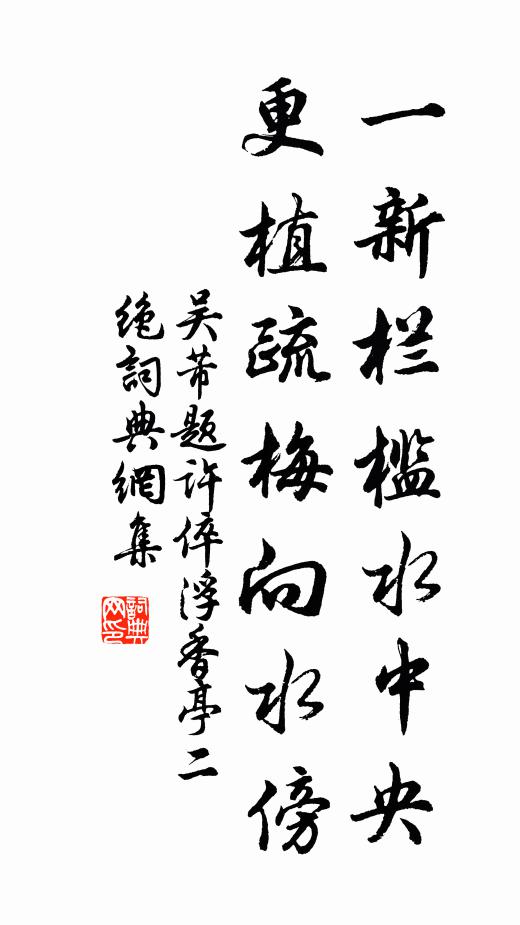 一新栏槛水中央
更植疏梅向水傍
吴芾题许倅浮香亭二
绝詞典網集
詞典网印